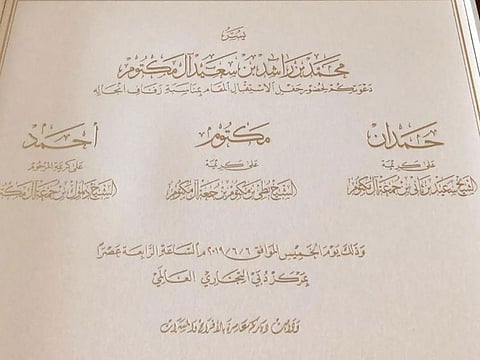 يسر
محمد بن راشد بن سعيد آل مكتوم
دعوتكم لحضور حفل الاستقبال المقام بمناسبة زفاف أنجاله
حمدان
على كريمة
الشيخ سعيد بن ثاني بن جمعة آل مكتوم
مكتوم
على كريمة
الشيخ بطي بن مكتوم بن جمعة آل مكتوم
أحمد
على كريمة المرحوم
الشيخ دلموك بن جمعة آل مكتوم
وذلك يوم الخميس الموافق ٢٠١٩/٦/٦م الساعة الرابعة عصراً
بمركز دبي التجاري العالمي
ودامت دياركم عامرة بالأفراح والمسرات